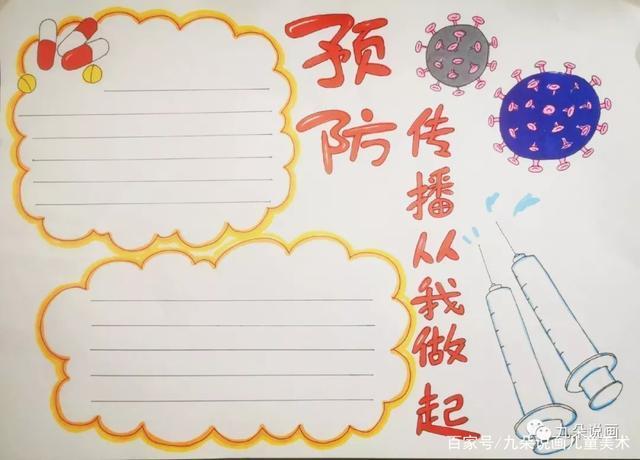 预防
传播从我做起
九朵说画
百家号/九朵说画儿童美术